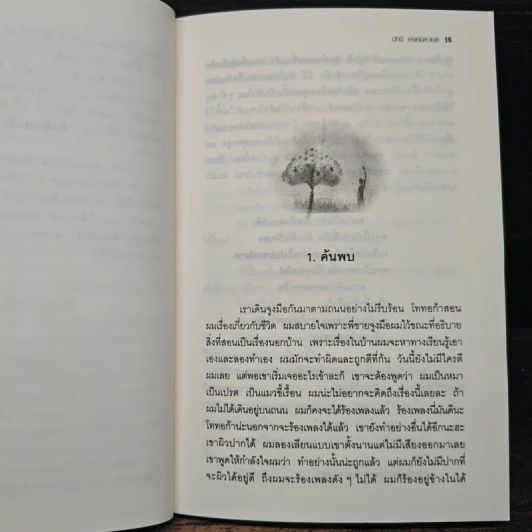 มัทนี เกษกมล แปล 15
1. ค้นพบ
เราเดินจูงมือกันมาตามถนนอย่างไม่รีบร้อน โททอก้าสอน
ผมเรื่องเกี่ยวกับชีวิต ผมสบายใจเพราะพี่ชายจูงมือผมไว้ขณะที่อธิบาย
สิ่งที่สอนเป็นเรื่องนอกบ้าน เพราะเรื่องในบ้านผมจะหาทางเรียนรู้เอา
เองและลองทำเอง ผมมักจะทำผิดและถูกตีที่ก้น วันนี้ยังไม่มีใครตี
ผมเลย แต่พอเขาเริ่มเจออะไรเข้าละก็ เขาจะต้องพูดว่า ผมเป็นหมา
เป็นเปรต เป็นแมวขี้เรื้อน ผมน่ะไม่อยากจะคิดถึงเรื่องนี้เลยละ ถ้า
ผมไม่ได้เดินอยู่บนถนน ผมก็คงจะได้ร้องเพลงแล้ว ร้องเพลงนี่มันดีนะ
โททอก้าน่ะนอกจากจะร้องเพลงได้แล้ว เขายังทำอย่างอื่นได้อีกนะฮะ
เขาผิวปากได้ ผมลองเลียนแบบเขาตั้งนานแต่ไม่มีเสียงออกมาเลย
เขาพูดให้กำลังใจผมว่า ทำอย่างนั้นน่ะถูกแล้ว แต่ผมก็ยังไม่มีปากที่
จะผิวได้อยู่ดี ถึงผมจะร้องเพลงดัง ๆ ไม่ได้ ผมก็ร้องอยู่ข้างในได้